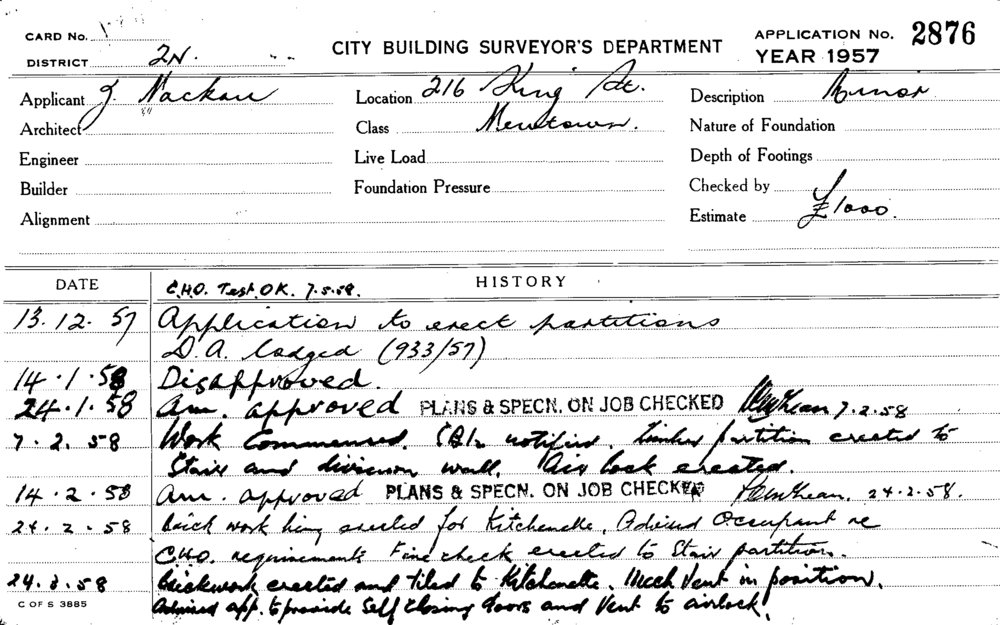 CARD No.
DISTRICT 2N.
CITY BUILDING SURVEYOR'S DEPARTMENT
APPLICATION No. 2876
YEAR 1957
Applicant J. Mackau
Location 216 King St.
Description Minor
Architect
Class Newtown.
Nature of Foundation
Engineer
Live Load
Depth of Footings
Builder
Foundation Pressure
Checked by
Alignment
Estimate £1000.
DATE
HISTORY
C.H.O. Test OK. 7.5.58.
13.12.57 Application to erect partitions
D.A. lodged (933/57)
14.1.58 Disapproved.
24.1.58 Am. approved PLANS & SPECN. ON JOB CHECKED 7.2.58
7.2.58 Work Commenced. notified. Timber partition erected to
Stair and division wall. Air lock erected.
14.2.58 Am. approved PLANS & SPECN. ON JOB CHECKED 24.2.58.
24.2.58 Brick work being erected for Kitchenette. Advised Occupant re
C.H.O. requirements Fire check erected to Stair partition.
24.3.58 Brickwork erected and tiled to Kitchenette. Mech Vent in position.
Advised app. to provide self closing doors and vent to airlock.
C OF S 3885